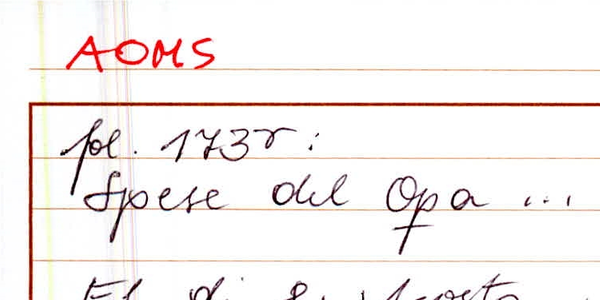 AOMS
fol. 173r:
Spese del Opa ...
El di